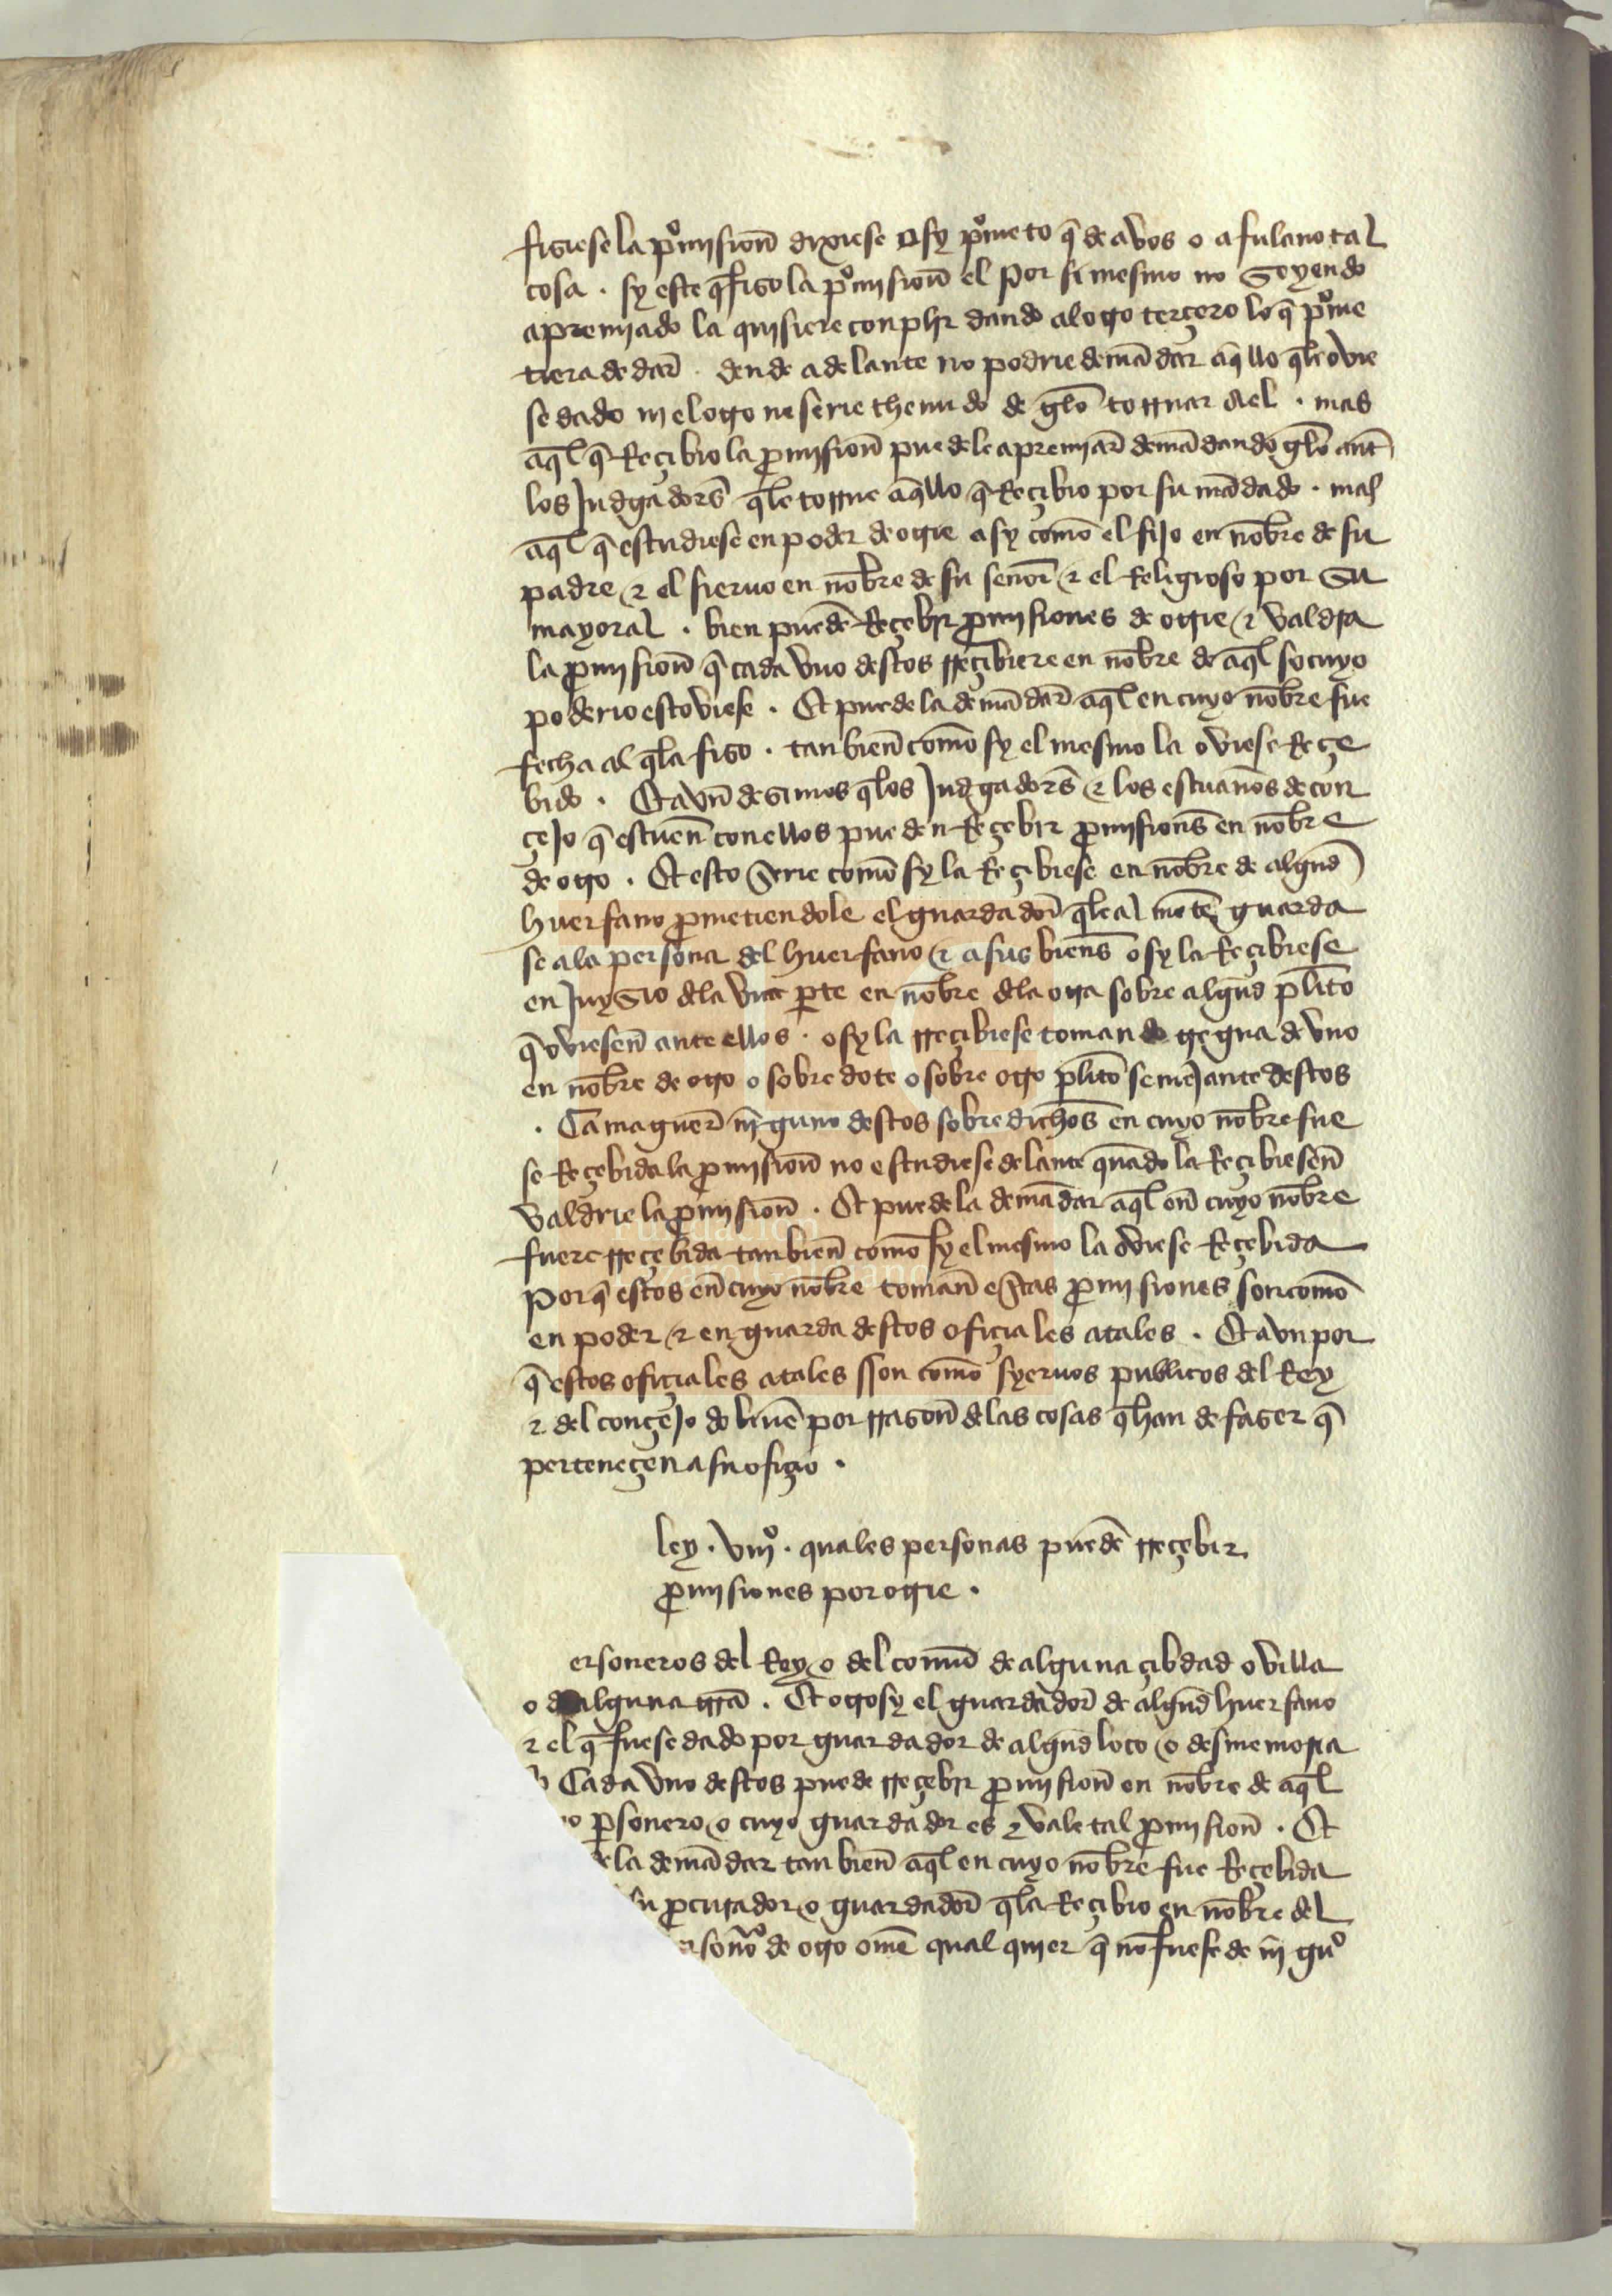 fisiese la pºmision̄ dixiese asy pºmeto q̄ de a vos o a fulano tal
cosa . sy este q̄ fiso la pºmision̄ el por si mesmo no seyendo
apremiado la quisiere conplir dando al otro terçero lo q̄ pºme
tiera de dar̄ . dende adelante no podrie demādar aq̄llo q̄le ovie
se dado ni el otro ne serie thenudo de gelo tornar a el . mas
aq̄l q̄ Reçibio la p̄mision̄ puedele apremiar̄ demādandogelo ant̄
los Judgadors̄ q̄le torne aq̄llo q̄ Reçibio por su mādado . mas
aq̄l q̄ estudiese en poder de otrie asy comō el fijo en nōbre de su
padre ⁊ el sieruo en nōbre de su señor̄ ⁊ el Religioso por su
mayoral . bien puedē Reçebir p̄misiones de otrie ⁊ valdra
la p̄mision̄ q̄ cada vno destos rreçibiere en nōbre de aq̄l so cuyo
poderio estoviese . Et puede la demādar̄ aq̄l en cuyo nōbre fue
fecha al q̄la fiso . tan bien̄ comō sy el mesmo la oviese Reçe
bido . Et avn̄ desimos q̄los Judgadors̄ ⁊ los escuanōs de con
çejo q̄ escuen̄ con ellos pueden Reçebir p̄misions̄ en nōbre
de otro . Et esto serie comō sy la Reçibiese en nōbre de algund̄
huerfano p̄metiendole el guardador̄ q̄ leal mētē guarda
se a la persona del huerfano ⁊ a sus biens̄ o sy la Reçibiese
en Juysio dla vna p̄te en nōbre dla otra sobre algund̄ pl̄ito
q̄ oviesen̄ ante ellos . o sy la rreçibiese tomando tregua de vno
en nōbre de otro o sobre dote o sobre otro pl̄ito semejante destos
. Ca maguer̄ nīguno destos sobre dichos̄ en cuyo nōbre fue
se Reçebida la p̄mision̄ no estudiese delante quādo la Reçibiesen̄
valdrie la p̄mision̄ . Et puede la demādar aq̄l en̄ cuyo nōbre
fuere rreçebida tan bien̄ comō sy el mesmo la oviese Reçebida
Por q̄ estos en̄ cuyo nōbre toman̄ estas p̄misiones son comō
en poder ⁊ en guarda destos ofiçiales atales . Et avn por
q̄ estos ofiçiales atales sson comō syeruos publicos del Rey
⁊ del conçejo do biuē por rrason̄ de las cosas q̄ han de faser q̄
perteneçen a su ofiçio .
ley . viijº . quales personas puedē rreçebir
p̄misiones por otrie .
ersoneros del Rey o del comū de alguna çibdad o villa
o de alguna trrā . Et otrosy el guardador̄ de algund̄ huerfano
⁊ el q̄ fuese dado por guardador de algund̄ loco o desmemoria
Cada vno destos puede rreçebir p̄mision̄ en nōbre de aq̄l
yo p̄sonero o cuyo guardador es ⁊ vale tal p̄mision̄ . Et
ela demādar tan bien̄ aq̄l en cuyo nōbre fue Reçebida
su p̄curador o guardador̄ q̄la Reçibio en nōbre del
ersonºo de otro omē qual quier q̄ nō fuese de nīguº